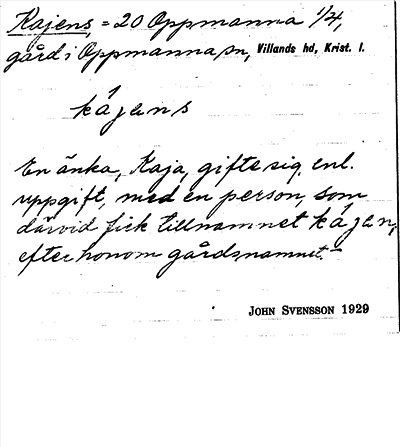 Kajens, = 20 Oppmanna 1/4,
gård i Oppmanna sn, Villands hd, Krist. l.
kájens
En änka, Kaja, gifte sig, enl.
uppgift, med en person, som
därvid fick tillnamnet kájen,
efter honom gårdsnamnet.-
JOHN SVENSSON 1929